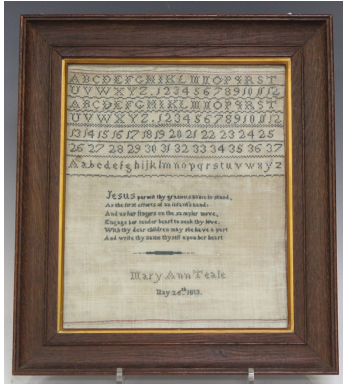 ABCDEFGHIKLMNOPQRST
UVWXYZ.123456789101112
ABCDEFGHIKLMNOPQRST
UVWXYZ.123456789101112
13 14 15 16 17 18 19 20 21 22 23 24 25
26 27 28 29 30 31 32 33 34 35 36 37
Aabcdefghijklmnopqrstuvwxyz
Jesus permit thy gracious name to stand,
As the first efforts of an infant's hand;
And as her fingers on the sampler move,
Engage her tender heart to seek thy love,
With thy dear children may she have a part
And write thy name thyself upon her heart
Mary Ann Teale
May 26th